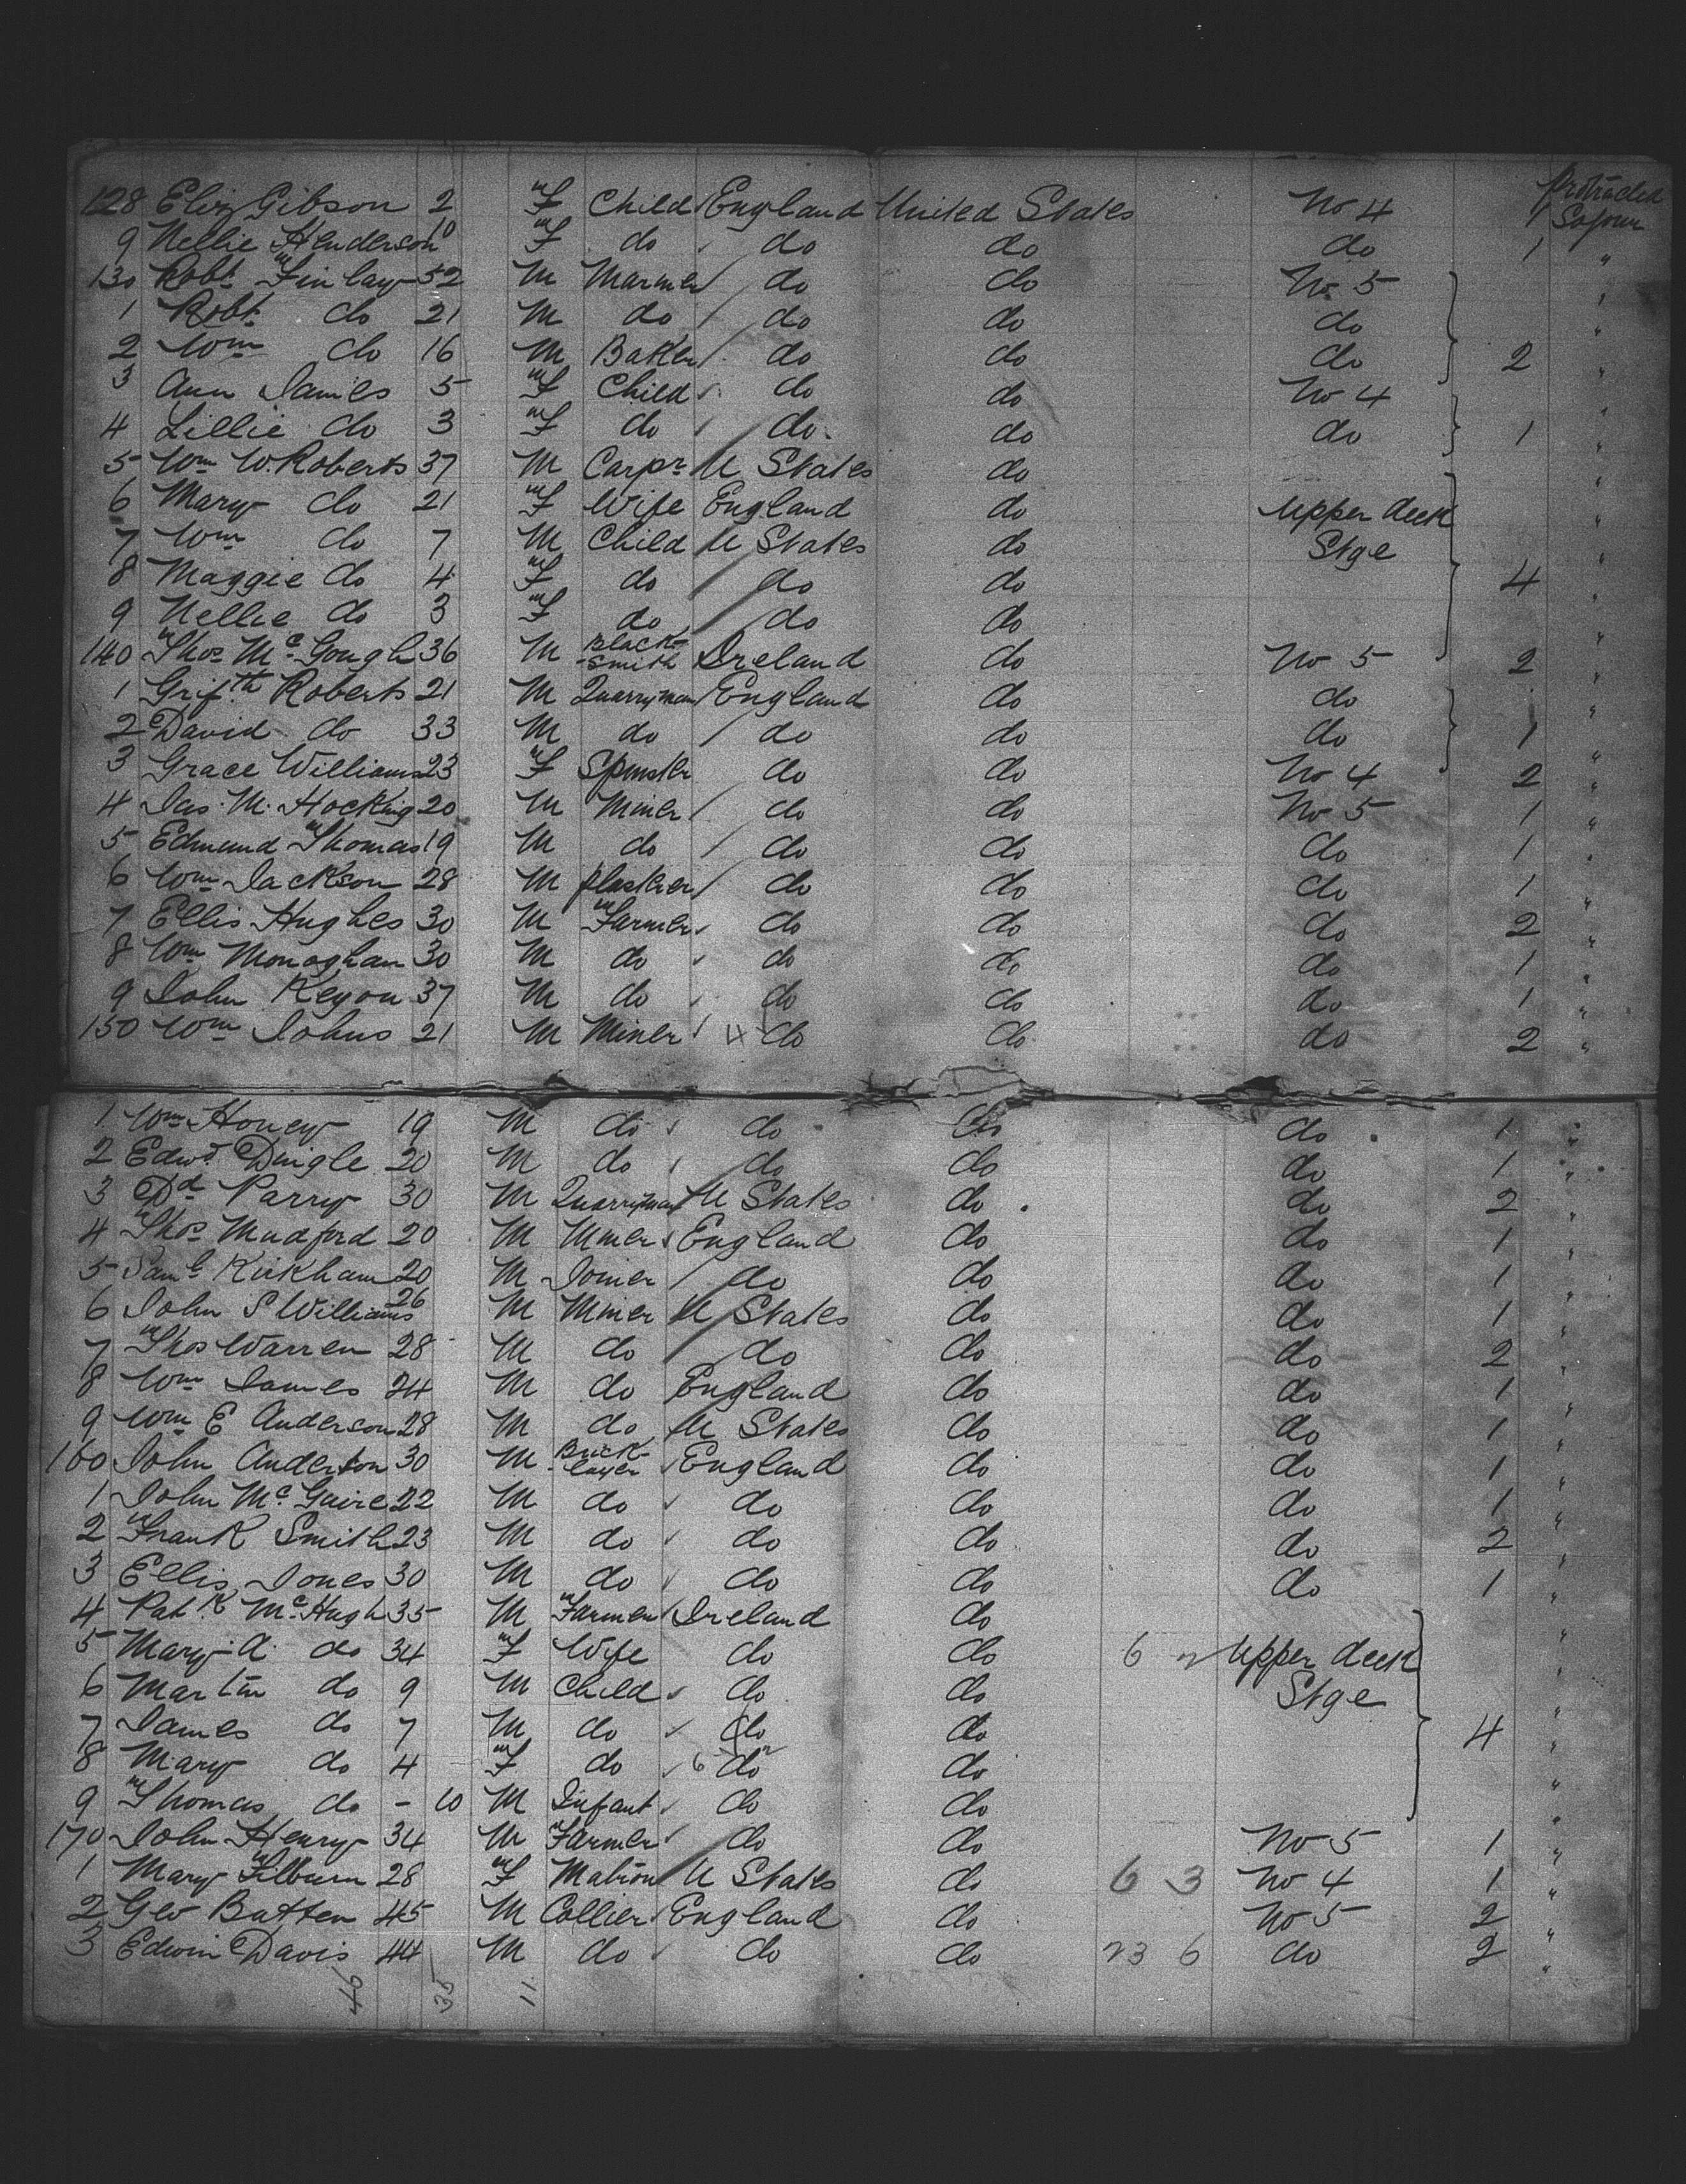 128 Eliz Gibson 2 F Child England United States No 4 1 Protracted Sojour
9 Nellie Henderson 10 F do do do do 1 "
130 Robt Finlay 52 M Marner do do No. 5 "
1 Robt do 21 M do do do do "
2 Wm do 16 M Baker do do do 2 "
3 Ann James 5 F Child do do No 4 "
4 Lillie do 3 F do do. do do 1 "
5 Wm W. Roberts 37 M Carpr U States do "
6 Mary do 21 F Wife England do Upper deck "
7 Wm do 7 M Child U States do Stge "
8 Maggie do 4 F do do do 4 "
9 Nellie do 3 F do do do "
140 Thos McGough 36 M Black-smith Ireland do No 5 2 "
1 Grifth Roberts 21 M Quarryman England do do "
2 David do 33 M do do do do 1 "
3 Grace Williams 23 F Spinster do do No 4 2 "
4 Jas. M. Hocking 20 M Miner do do No 5 1 "
5 Edmund Thomas 19 M do do do do 1 "
6 Wm Jackson 28 M plasterer do do do 1 "
7 Ellis Hughes 30 M Farmer do do do 2 "
8 Wm Monoghan 30 M do do do do 1 "
9 John Keyon 37 M do do do do 1 "
150 Wm Johns 21 M Miner 4 do do do 2 "
1 Wm Honey 19 M do do do do 1 "
2 Edwd Dingle 20 M do do do do 1 "
3 Dd Parry 30 M Quarryman U States do do 2 "
4 Thos Mudford 20 M Miner England do do 1 "
5 Saml Kirkham 20 M Joiner do do do 1 "
6 John S Williams 26 M Miner U States do do 1 "
7 Thos Warren 28 M do do do do 2 "
8 Wm James 24 M do England do do 1 "
9 Wm E Anderson 28 M do U States do do 1 "
160 John Anderton 30 M Brick-layer England do do 1 "
1 John McGuire 22 M do do do do 1 "
2 Frank Smith 23 M do do do do 2 "
3 Ellis Jones 30 M do do do do 1 "
4 Patk McHugh 35 M Farmer Ireland do "
5 Mary A. do 34 F Wife do do 6 Upper deck "
6 Martin do 9 M Child do do Stge "
7 James do 7 M do do do 4 "
8 Mary do 4 F do 6 do do "
9 Thomas do - 10 M Infant do do "
170 John Henry 34 M Farmer do do No 5 1 "
1 Mary Filburn 28 F Matron U States do 6 3 No 4 1 "
2 Geo Batten 45 M Collier England do No 5 2 "
3 Edwin Davis 44 M do do do 23 6 do 2 "
35 11